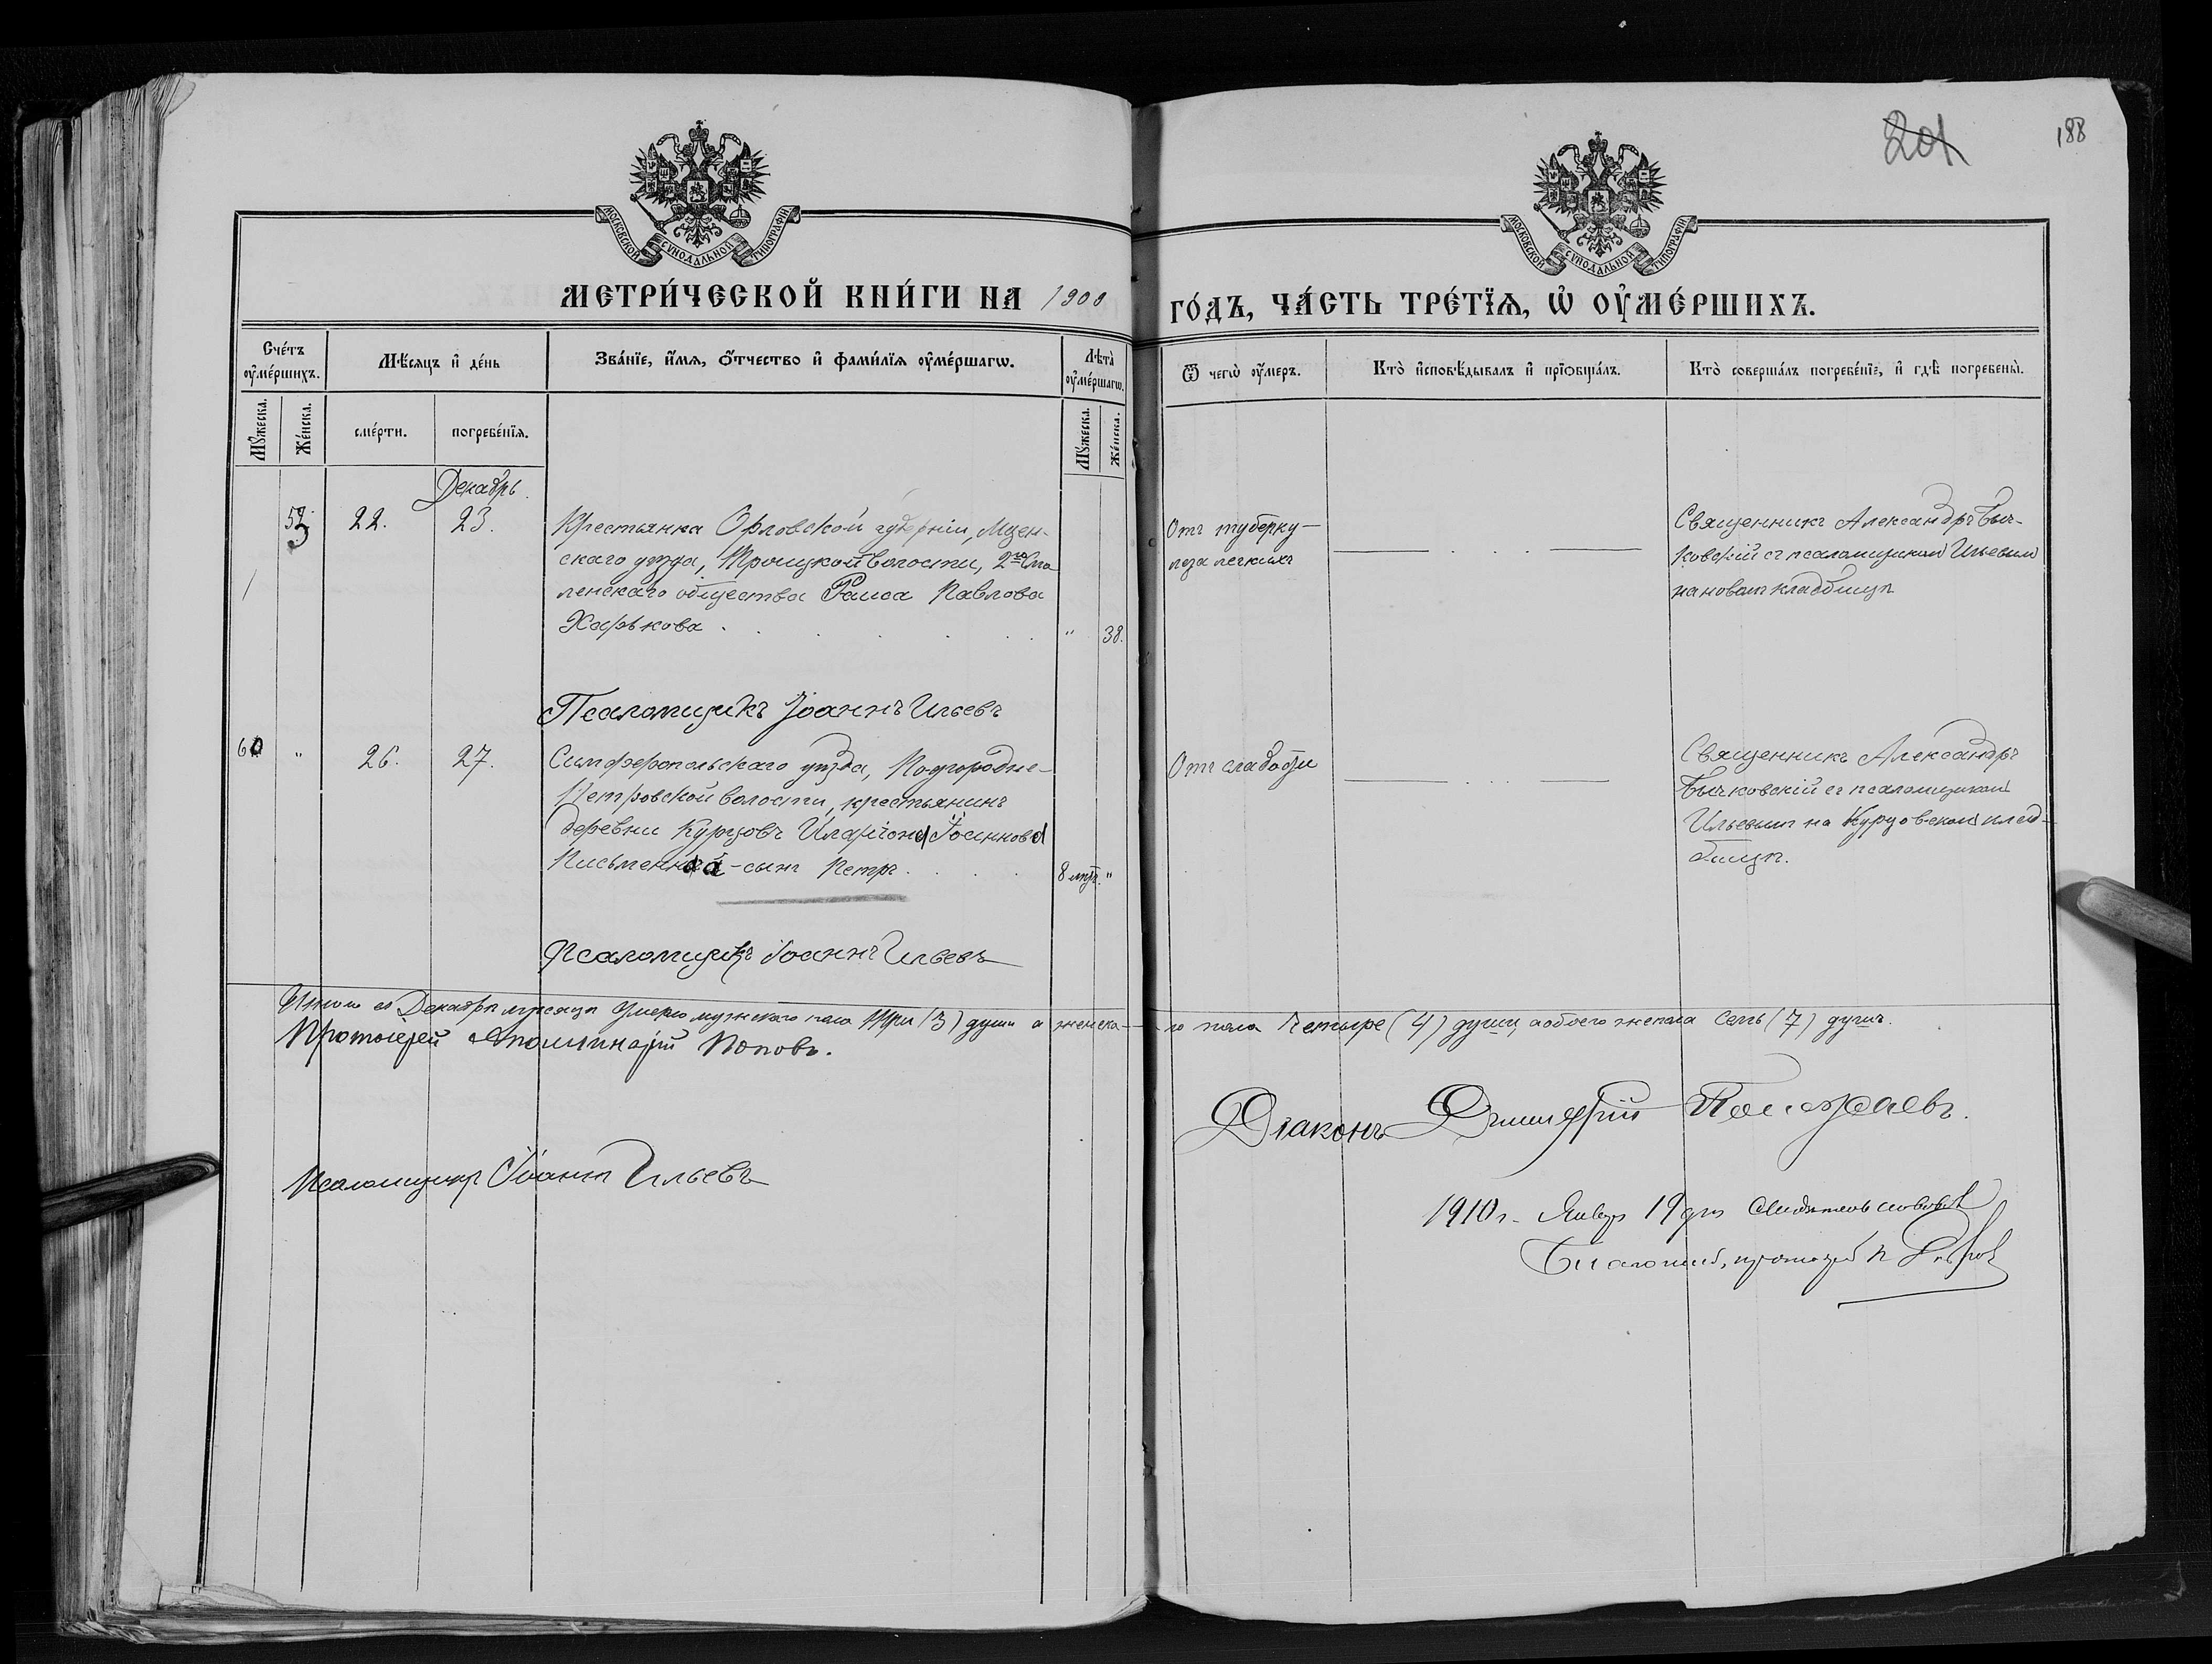 201
188
МОСКОВСКОЙ СѴНОДАЛЬНОЙ ТИПОГРАФІИ
МОСКОВСКОЙ СѴНОДАЛЬНОЙ ТИПОГРАФІИ
МЕТРИ́ЧЕСКОЙ КНИ́ГИ НА 1909
ГО́ДЪ, ЧА́СТЬ ТРЕ́ТЇѦ, Ѡ҆ ОУ҆МЕ́РШИХЪ.
Сче́тъ оу҆ме́ршихъ.
Мѣ́сѧцъ и҆ де́нь
Зва́нїе, и҆́мѧ, ѻ҆́тчество и҆ фами́лїѧ оу҆ме́ршагѡ.
Лѣта̀ оу҆ме́ршагѡ.
Ѿ чегѡ̀ оу҆́меръ.
Кто̀ и҆сповѣ́дывалъ и҆ прїѡбща́лъ.
Кто̀ соверша́лъ погребе́нїе, и҆ гдѣ̀ погребены̀.
Мꙋ́жеска.
Же́нска.
сме́рти.
погребе́нїѧ.
Мꙋ́жеска.
Же́нска.
Декабрь.
53 22. 23.
Крестьянка Орловской губерніи, Мцен-
скаго уѣзда, Троицкой волости, 2го Смо
ленскаго общества Раиса Павлова
Харькова . " 38.
Отъ туберку-
леза легкихъ
Священникъ Александръ Быч-
ковскій съ псаломщикомъ Ильевымъ
на новомъ кладбищѣ
Псаломщикъ Іоаннъ Ильевъ
60 " 26. 27.
Симферопольскаго уѣзда, Подгородне-
Петровской волости, крестьянинъ
деревни Курцовъ Иларіона
Письменнаго-сынъ Петръ . 8 мѣс. "
Отъ слабости
Священникъ Александръ
Бычковскій съ псаломщикомъ
Ильевымъ на Курцовскомъ клад-
бищѣ.
Псаломщикъ Іоаннъ Ильевъ
Итого въ Декабрѣ мѣсяцѣ умерло мужского пола три (3) души а женска-го пола четыре (4) души а обоего же пола семь (7) душъ.
Протоіерей Аполлинарій Поповъ.
Діаконъ Димитрій
Псаломщикъ Іоаннъ Ильевъ
1910 г. Января 19 дня свидѣтельствовалъ
Благочинный, протоіерей